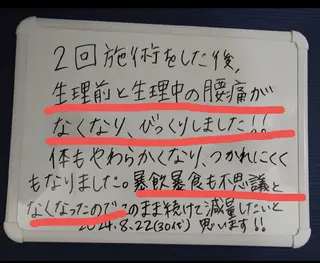 2回施術をした後、
生理前と生理中の腰痛が
なくなり、びっくりしました!!
体もやわらかくなり、つかれにくく
もなりました。暴飲暴食も不思議と
なくなったのでこのまま続けて減量したいと
2024.8.22(30代) 思います!!